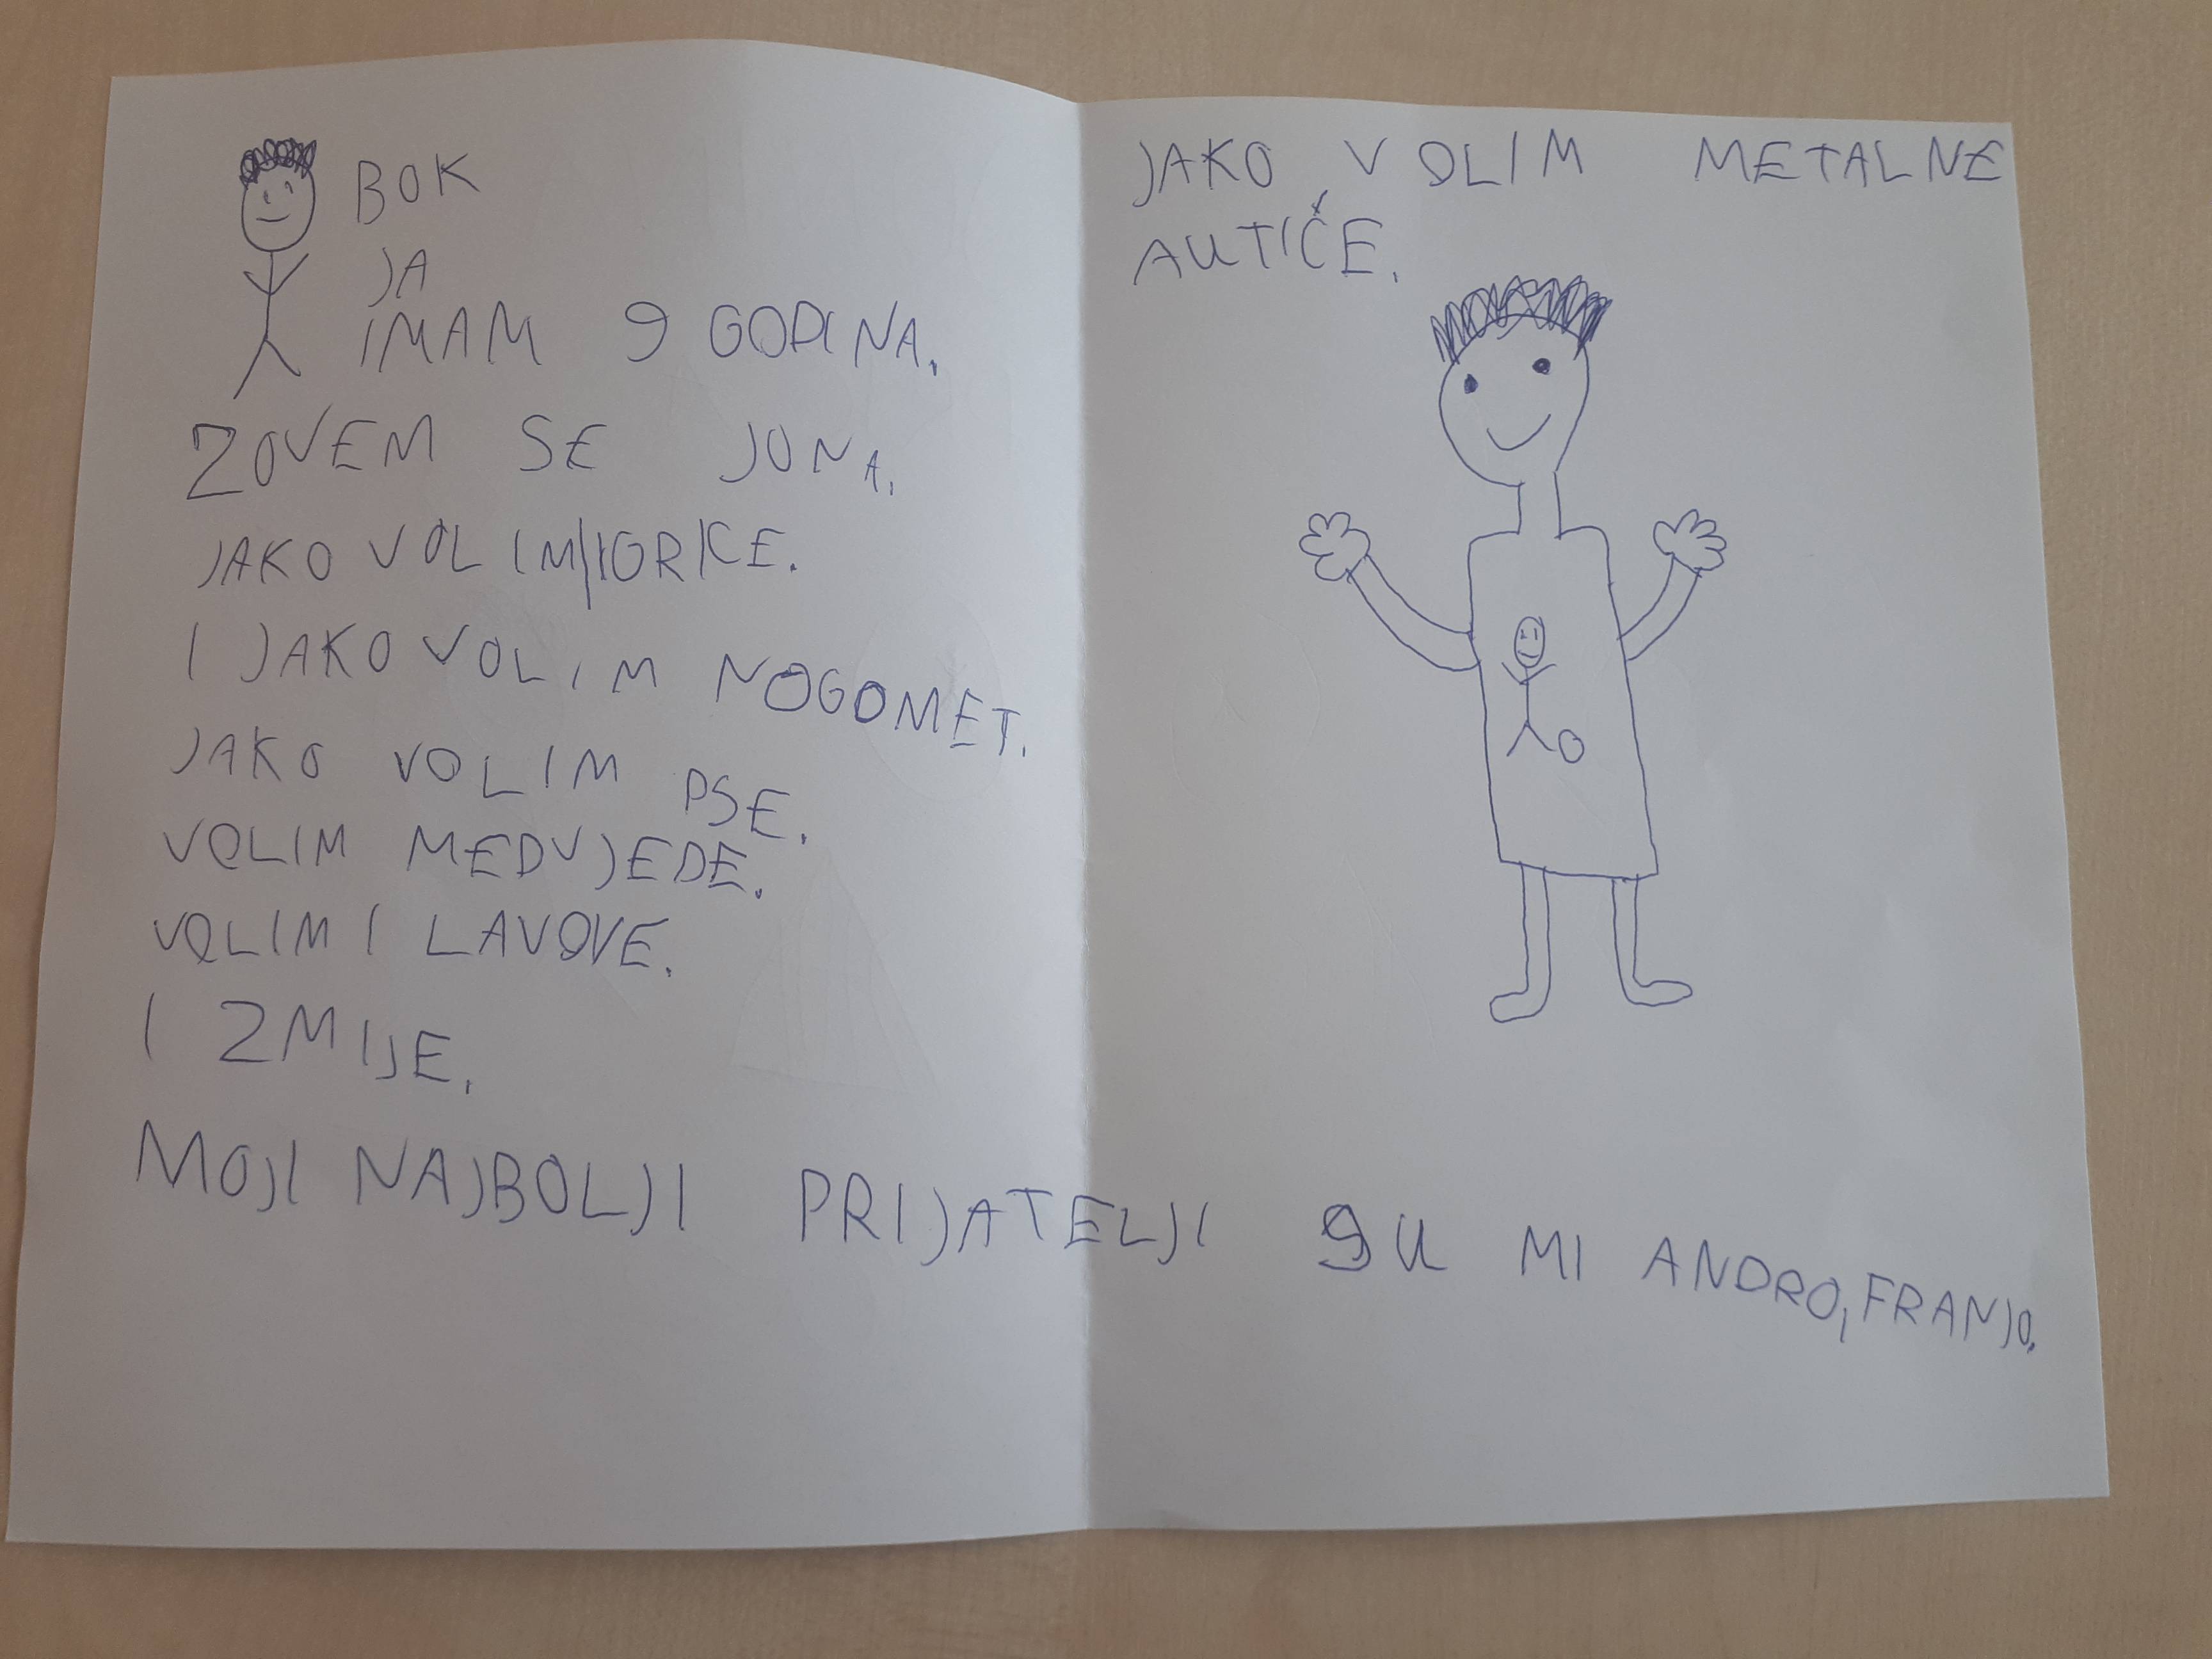 BOK
JA
IMAM 9 GODINA.
ZOVEM SE JONA.
JAKO VOLIM|IGRICE.
I JAKO VOLIM NOGOMET.
JAKO VOLIM PSE.
VOLIM MEDVJEDE.
VOLIM I LAVOVE.
I ZMIJE.
JAKO VOLIM METALNE
AUTIĆE.
MOJI NAJBOLJI PRIJATELJI SU MI ANDRO, FRANJO.